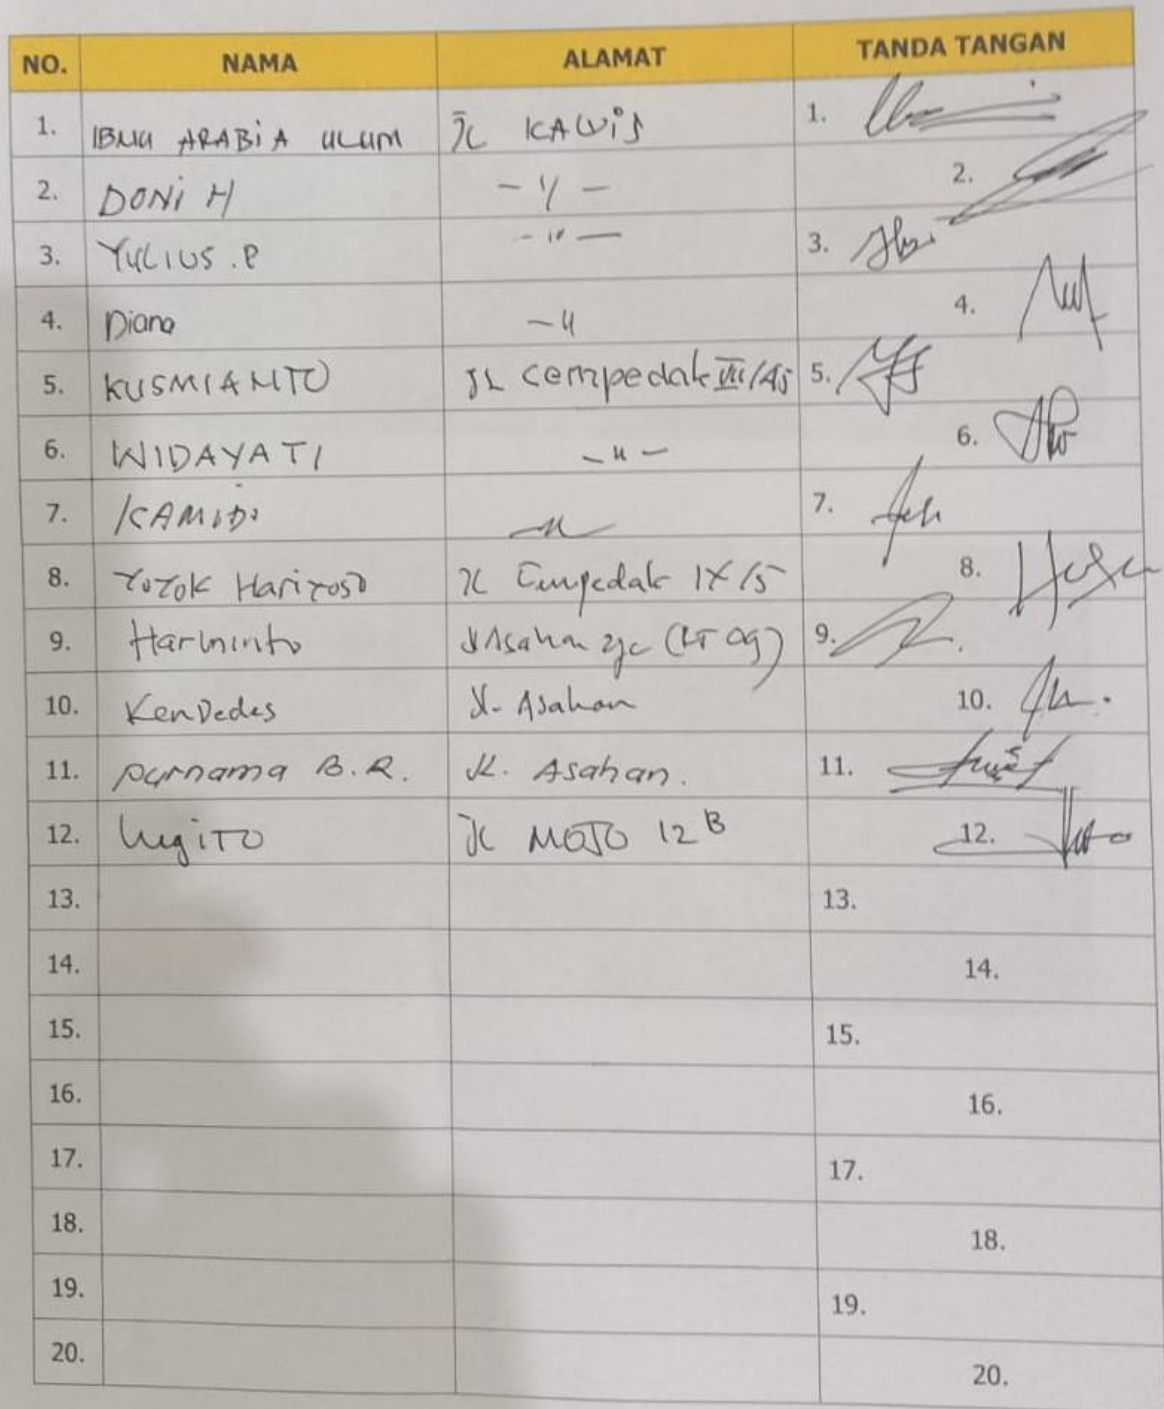 NO. NAMA ALAMAT TANDA TANGAN
1. IBNU ARABiA ULUM JL KAWiS 1.
2. DONi H - 11 - 2.
3. YULIUS . P - 11 - 3.
4. Diana - 11 4.
5. KUSMIANTO JL Cempedak VII/45 5.
6. WIDAYATI - 11 - 6.
7. KAMIDI 7.
8. YoYok Hariyoso JL Cempedak IX/5 8.
9. Harwinto Jl Asahan (RT 09) 9.
10. KenDedes Jl. Asahan 10.
11. Purnama B.R. JL. Asahan. 11.
12. UgiTO JL MOJO 12 B 12.
13. 13.
14. 14.
15. 15.
16. 16.
17. 17.
18. 18.
19. 19.
20. 20.